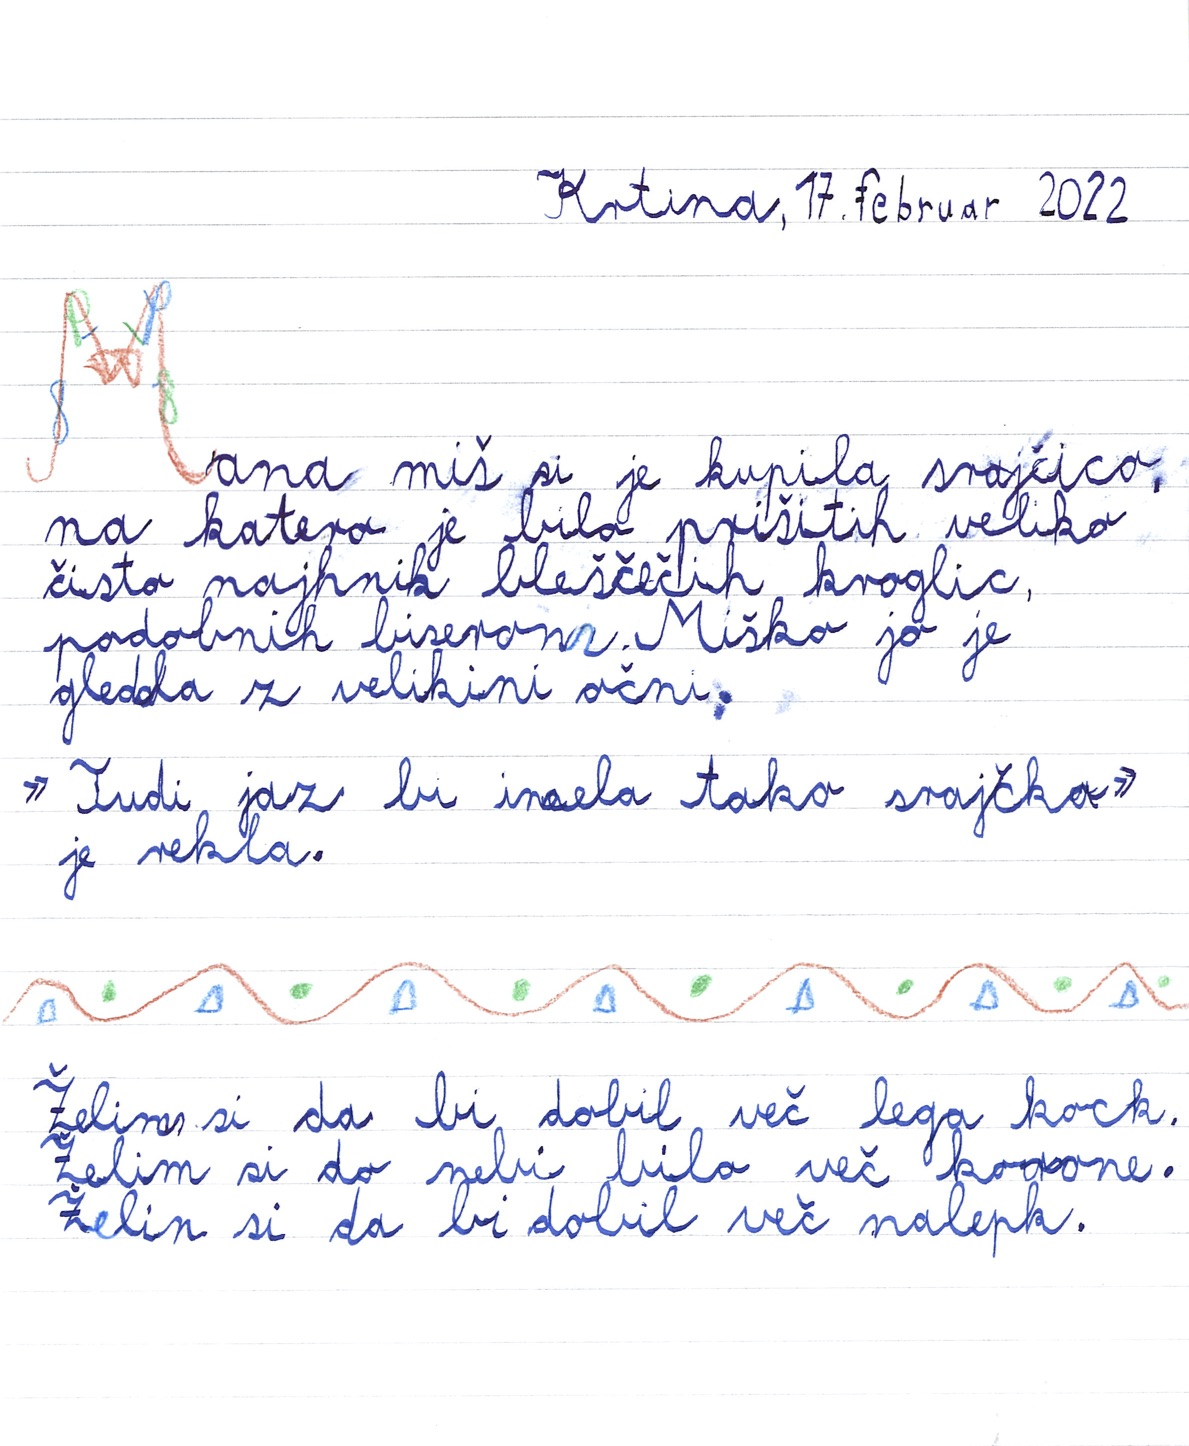 Krtina, 17. februar 2022
Mana miš si je kupila srajčico,
na katero je bilo prišitih veliko
čisto najhnik bleščečih kroglic,
podobnih biserom. Miško jo je
gledala z velikini očni.
» Tudi jaz bi imela tako srajčko»
je rekla.
Želim si da bi dobil več lega kock.
Želim si do nebi bilo več korone.
Želin si da bi dobil več nalepk.